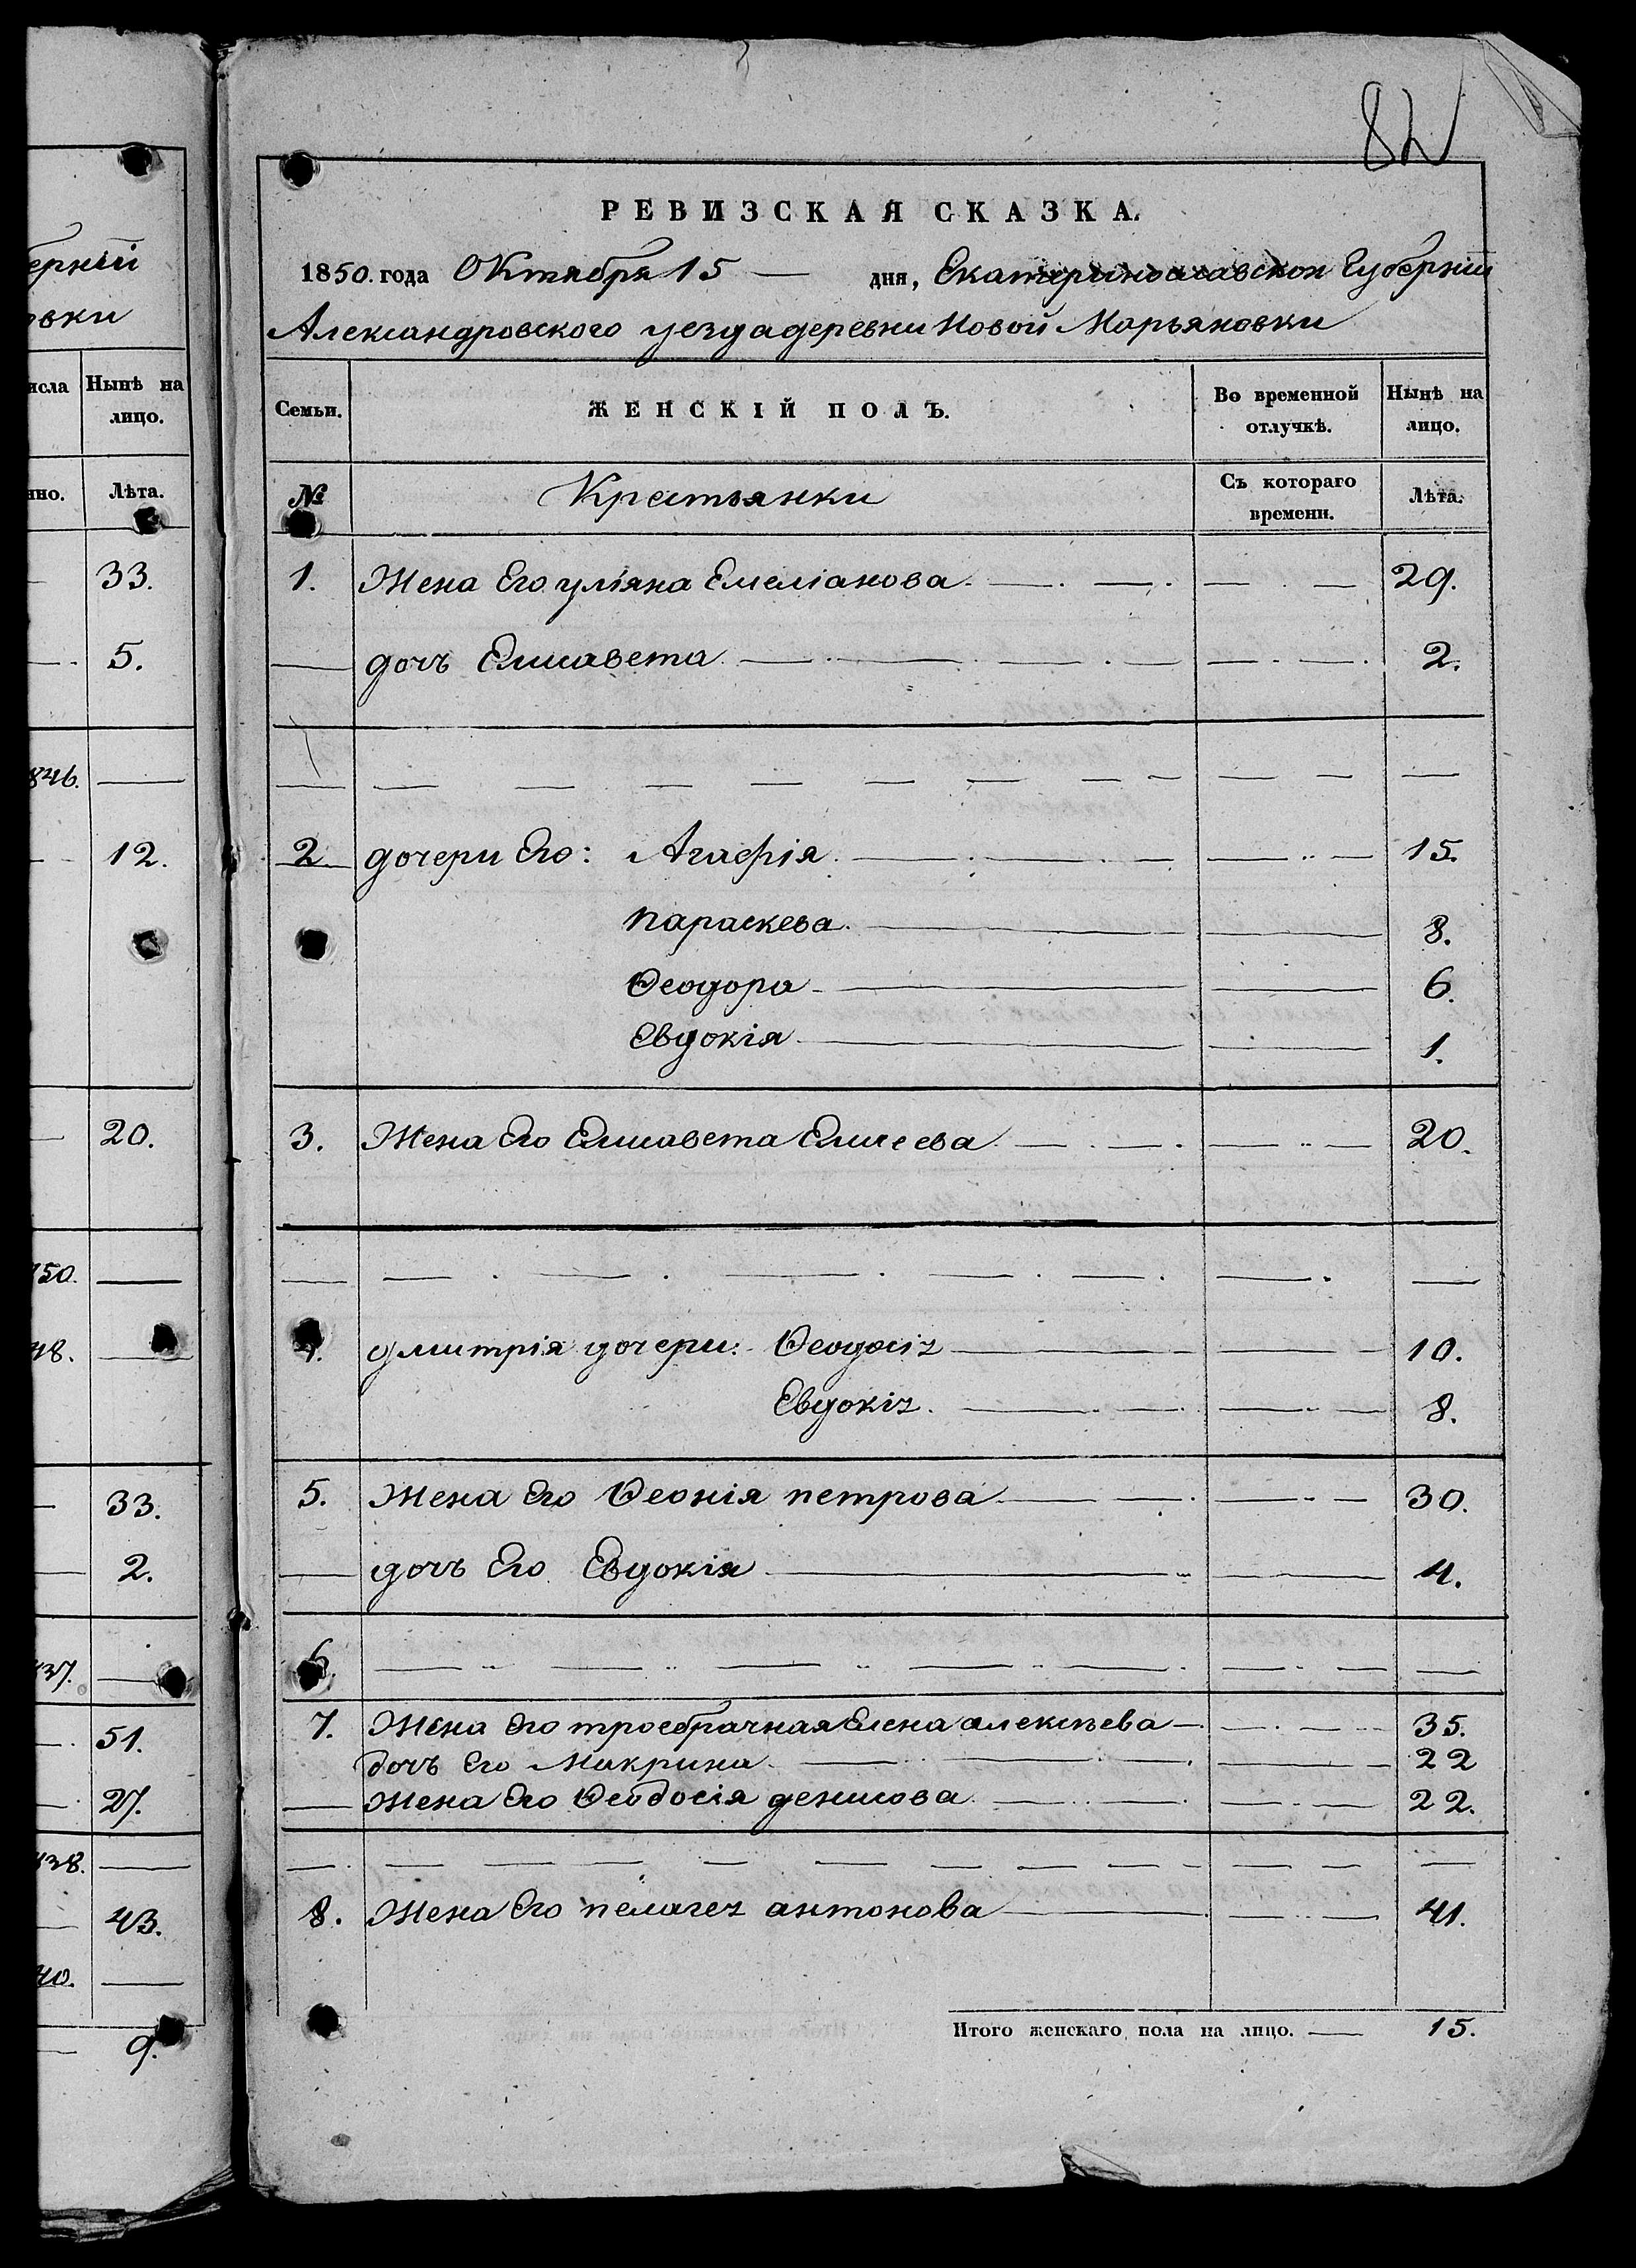 ерніи
вки
исла Нынѣ на
лицо.
нно. Лѣта.
33.
5.
846.
12.
20.
150.
48.
33.
2.
437.
51.
27.
438.
43.
40.
9.
82
РЕВИЗСКАЯ СКАЗКА.
1850. года Октября 15 — дня, Екатеринославской Губерніи
Александровского уезда деревни Новой Марьяновки
Семьи. ЖЕНСКІЙ ПОЛЪ. Во временной отлучкѣ. Нынѣ на лицо.
№ Крестьянки Съ котораго времени. Лѣта.
1. Жена Его уліяна Емеліанова 29.
дочь Елисавета 2.
2 дочери Его: Агафія 15.
параскева 8.
Ѳеодора 6.
Евдокія 1.
3. Жена Его Елисавета Елисеева 20.
4. дмитрія дочери: Ѳеодосія 10.
Евдокія 8.
5. Жена Его Ѳеонія петрова 30.
дочь Его Евдокія 4.
6.
7. Жена Его троебрачная Елена алексѣева 35.
дочь Его Макрина 22
Жена Его Ѳеодосія денисова 22.
8. Жена Его пелагея антонова 41.
Итого женскаго пола на лицо. — 15.